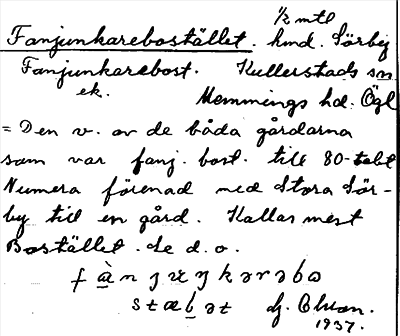 1/2 mtl
Fanjunkarebostället. hmd. Sörby
Fanjunkarebost. Kullerstads sn
ek. Memmings hd. Ögl
= Den v. av de båda gårdarna
som var fanj. bost. till 80-talet
Numera förenad med Stora Sör-
by till en gård. Kallas mest
Bostället. Se d. o.
1937.